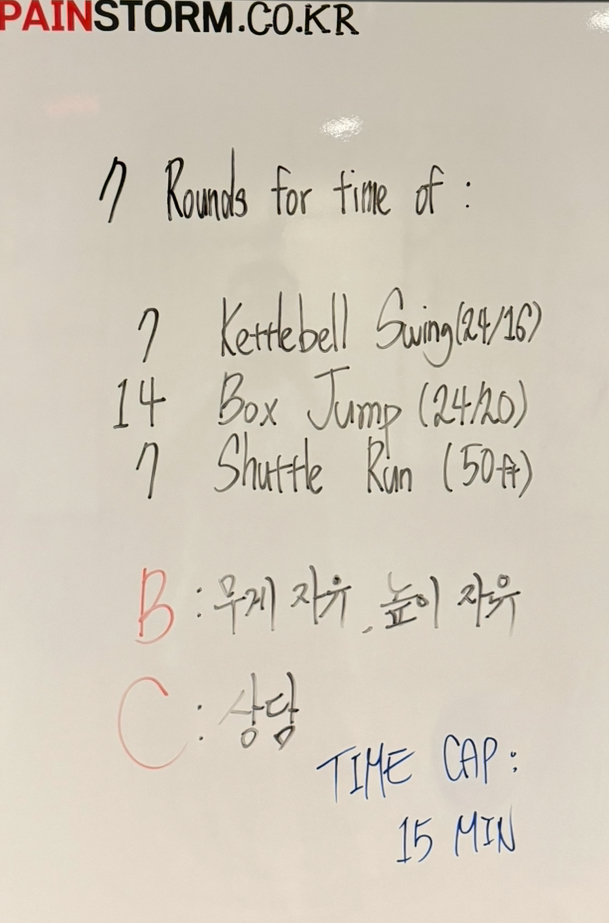 PAINSTORM.CO.KR
7 Rounds for time of :
7 Kettlebell Swing (24/16)
14 Box Jump (24/20)
7 Shuttle Run (50ft)
B : 무게 자유, 높이 자유
C : 상담
TIME CAP :
15 MIN